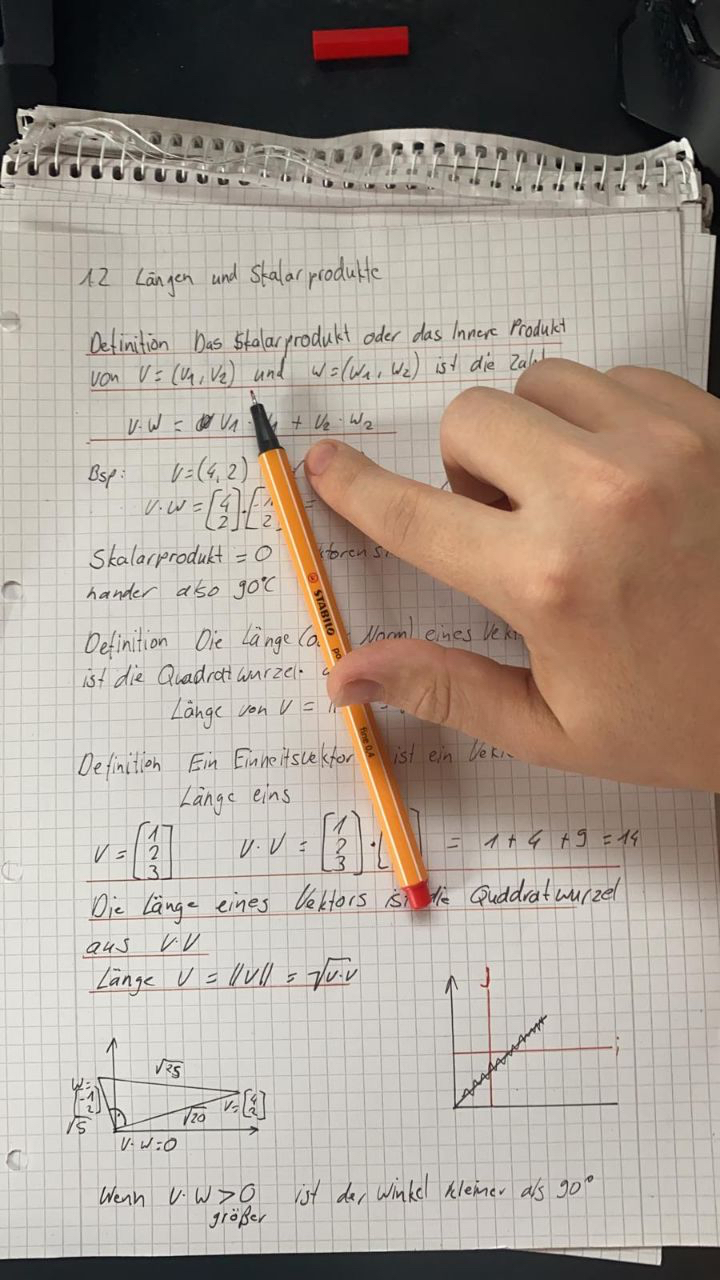 1.2 Längen und Skalarprodukte
Definition Das Skalarprodukt oder das Innere Produkt
von V = (V1, V2) und W = (W1, W2) ist die Zahl
V·W = V1 · + V2 · W2
Bsp: V = (4, 2)
V·W = [4 2] · [ 2] =
Skalarprodukt = 0
nander also 90°C
Definition Die Länge Norm) eines
ist die Quadratwurzel
Länge von V =
Definition Ein Einheitsvektor ist ein
Länge eins
V = [1 2 3] V·V = [1 2 3] · [ ] = 1 + 4 + 9 = 14
Die Länge eines Vektors ist die Quddratwurzel
aus V·V
Länge V = ||V|| = √V·V
√25
W = [-1 2]
√5
√20
V = [4 2]
V·W=0
J
i
Wenn V·W > 0 ist der Winkel kleiner als 90°
größer
STABILO
fine 0,4